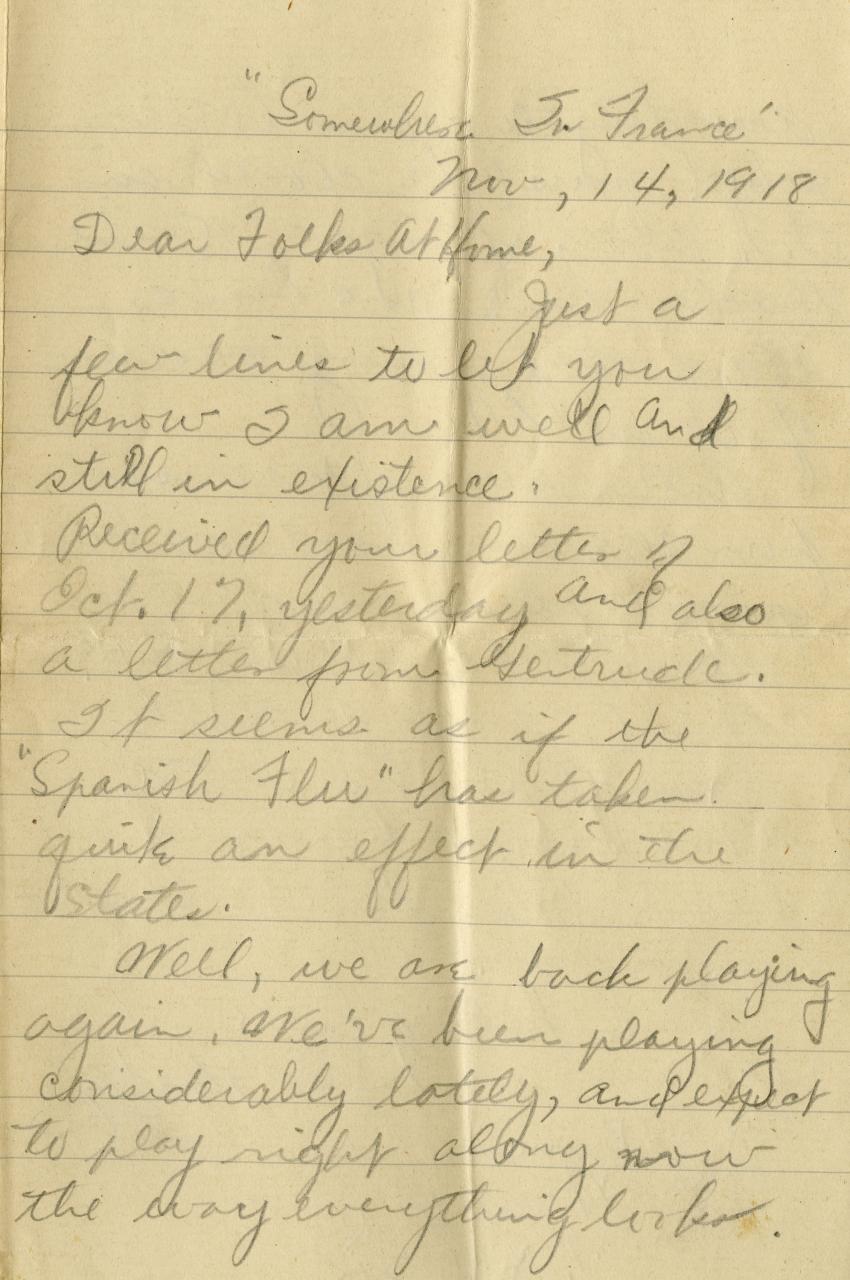 "Somewhere In France"
Nov, 14, 1918
Dear Folks At Home,
Just a
few lines to let you
know I am well and
still in existence.
Received your letter of
Oct. 17, yesterday and also
a letter from Gertrude.
It seems as if the
"Spanish Flu" has taken
quite an effect in the
States.
Well, we are back playing
again. We've been playing
considerably lately, and expect
to play right along now
the way everything looks.